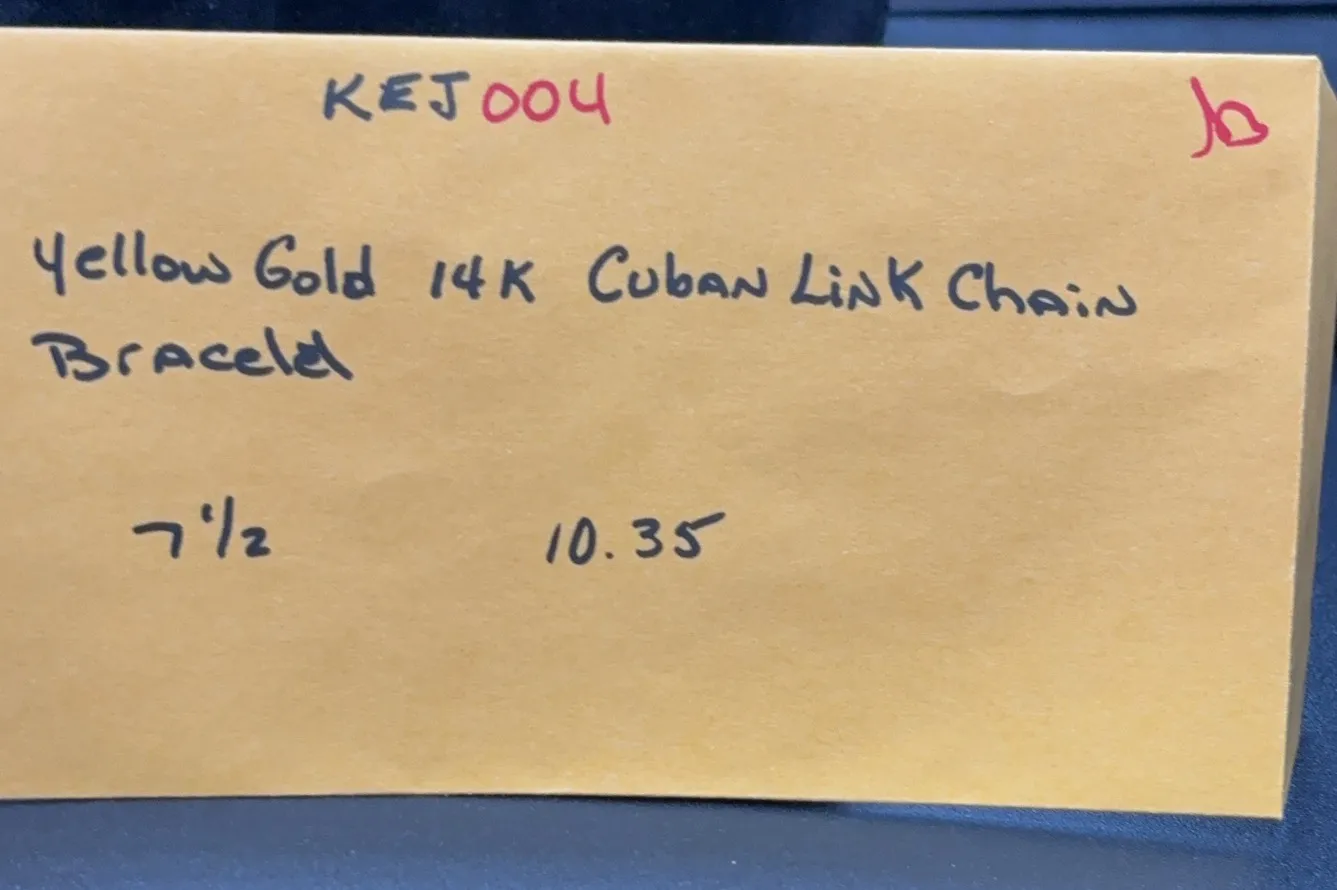 KEJ004
Yellow Gold 14K Cuban Link Chain
Bracelet
7 1/2 10.35